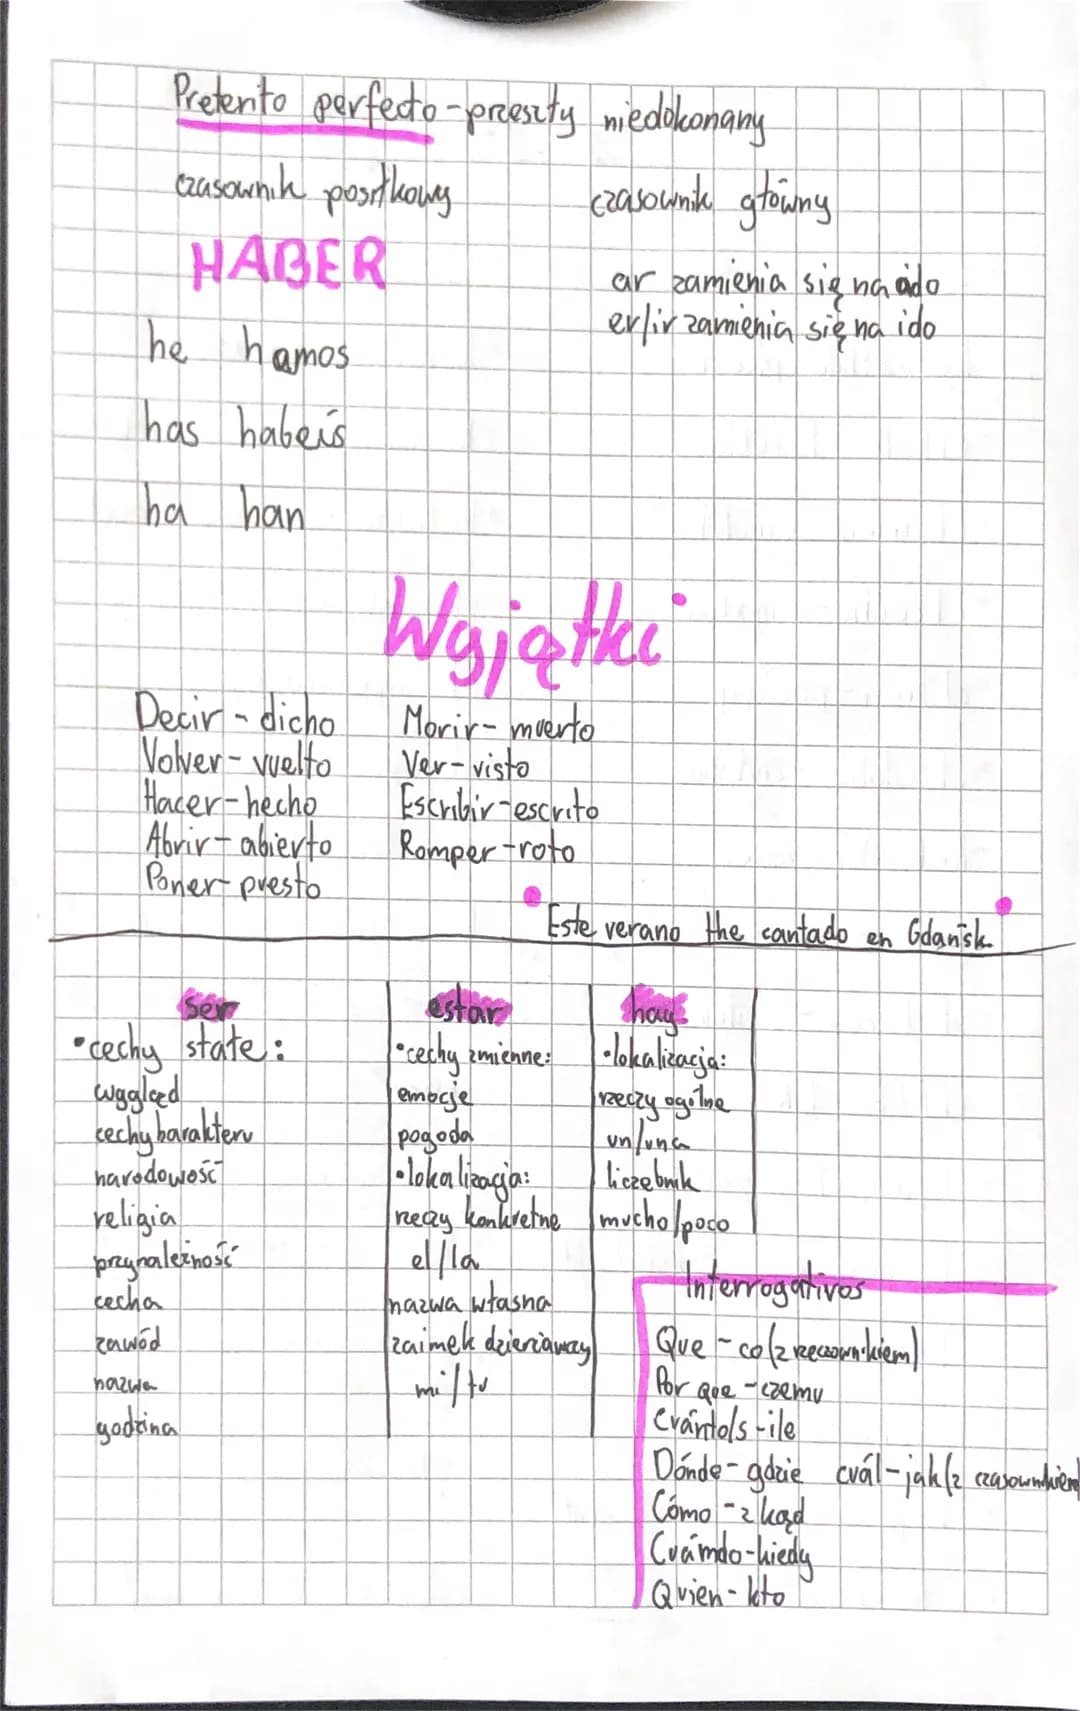 Pretento perfecto - przeszty niedokonany
czasownik positkowy czasownik główny
HABER
ar zamienia się na ado
er/ir zamienia się na ido
he hamos
has habeís
ha han
Wyjątki
Decir - dicho Morir - muerto
Volver - vuelto Ver - visto
Hacer - hecho Escribir - escrito
Abrir - abierto Romper - roto
Poner - puesto
Este verano the cantado en Gdańsk.
ser
• cechy state:
wygląd
cechy harakteru
narodowość
religia
przynależność
cecha
zawód
nazwa
godzina
estar
• cechy zmienne:
emocje
pogoda
• lokalizacja:
rzeczy konkretne
el/la
nazwa własna
zaimek dzierżawczy
mi/tu
hay
• lokalizacja:
rzeczy ogólne
un/una
liczebnik
mucho/poco
Interrogativos
Que - co (z rzeczownikiem)
Por que - czemu
Cuánto/s - ile
Dónde - gdzie cuál - jak (z czasownikiem
Cómo - z kąd
Cuámdo - kiedy
Quien - kto